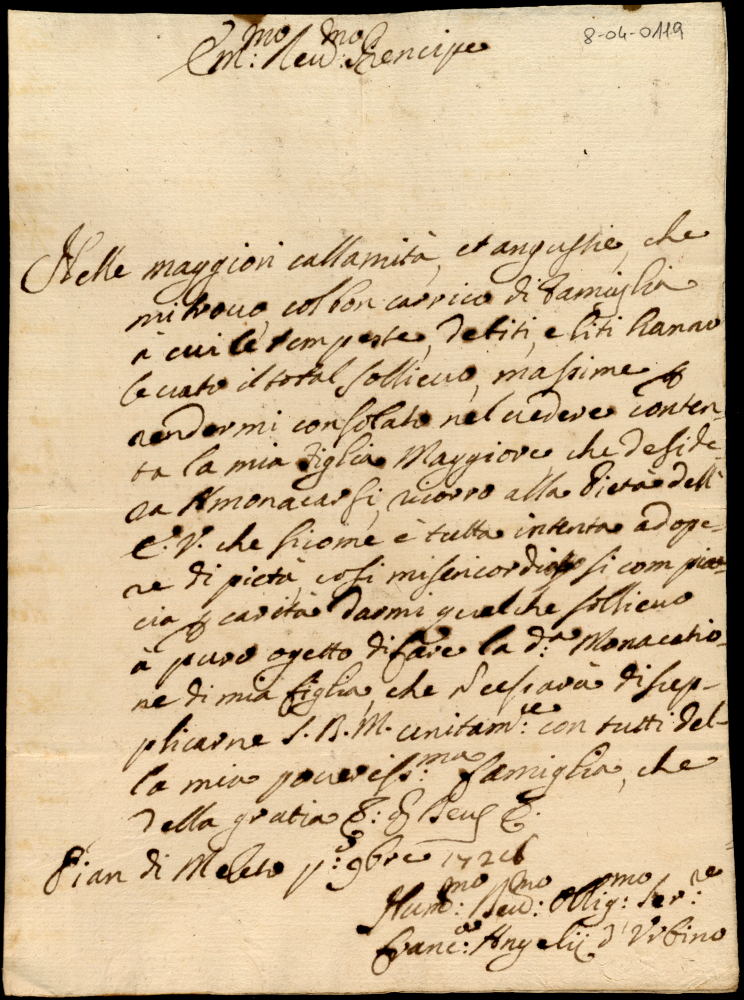 8-04-0119
Em:mo Reud:mo Prencipe
Nelle maggiori callamità, et angustie, che
mi trovo, col bon carrico di famiglia
à cui le tempeste, debiti, e liti hanno
levato il total sollievo, massime p
rendermi consolato nel vedere conten-
ta la mia figlia Maggiore che deside-
ra Amonacarsi, ricorro alla Pietà dell
E. V. che sicome è tutta intenta ad ope-
re di pietà, cosi si com piac-
cia p carità darmi qualche sollievo
à puro ogetto di fare la d:a Monacatio-
ne di mia figlia, che ñ cessarà di sup-
plicarne S. B. M. unitam:te con tutti del-
la mia poveriss:ma famiglia, che
della gratia
Pian di Meleto p:o 9bre
Hum:mo Deu:mo Oblig:mo Ser:re
Franc:o Angelij d'Urbino